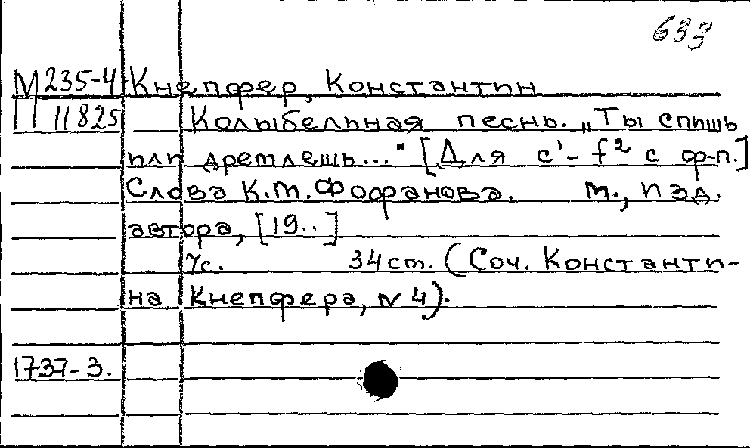 633
М 235-4 Кнепфер, Константин
П 11825 Колыбельная песнь. „Ты спишь
или дремлешь..." [Для c'-f² с ф-п.]
Слова К.М.Фофанова. М., изд.
автора, [19..]
7с. 34 ст. (Соч. Константи-
на Кнепфера, № 4).
1737-3.